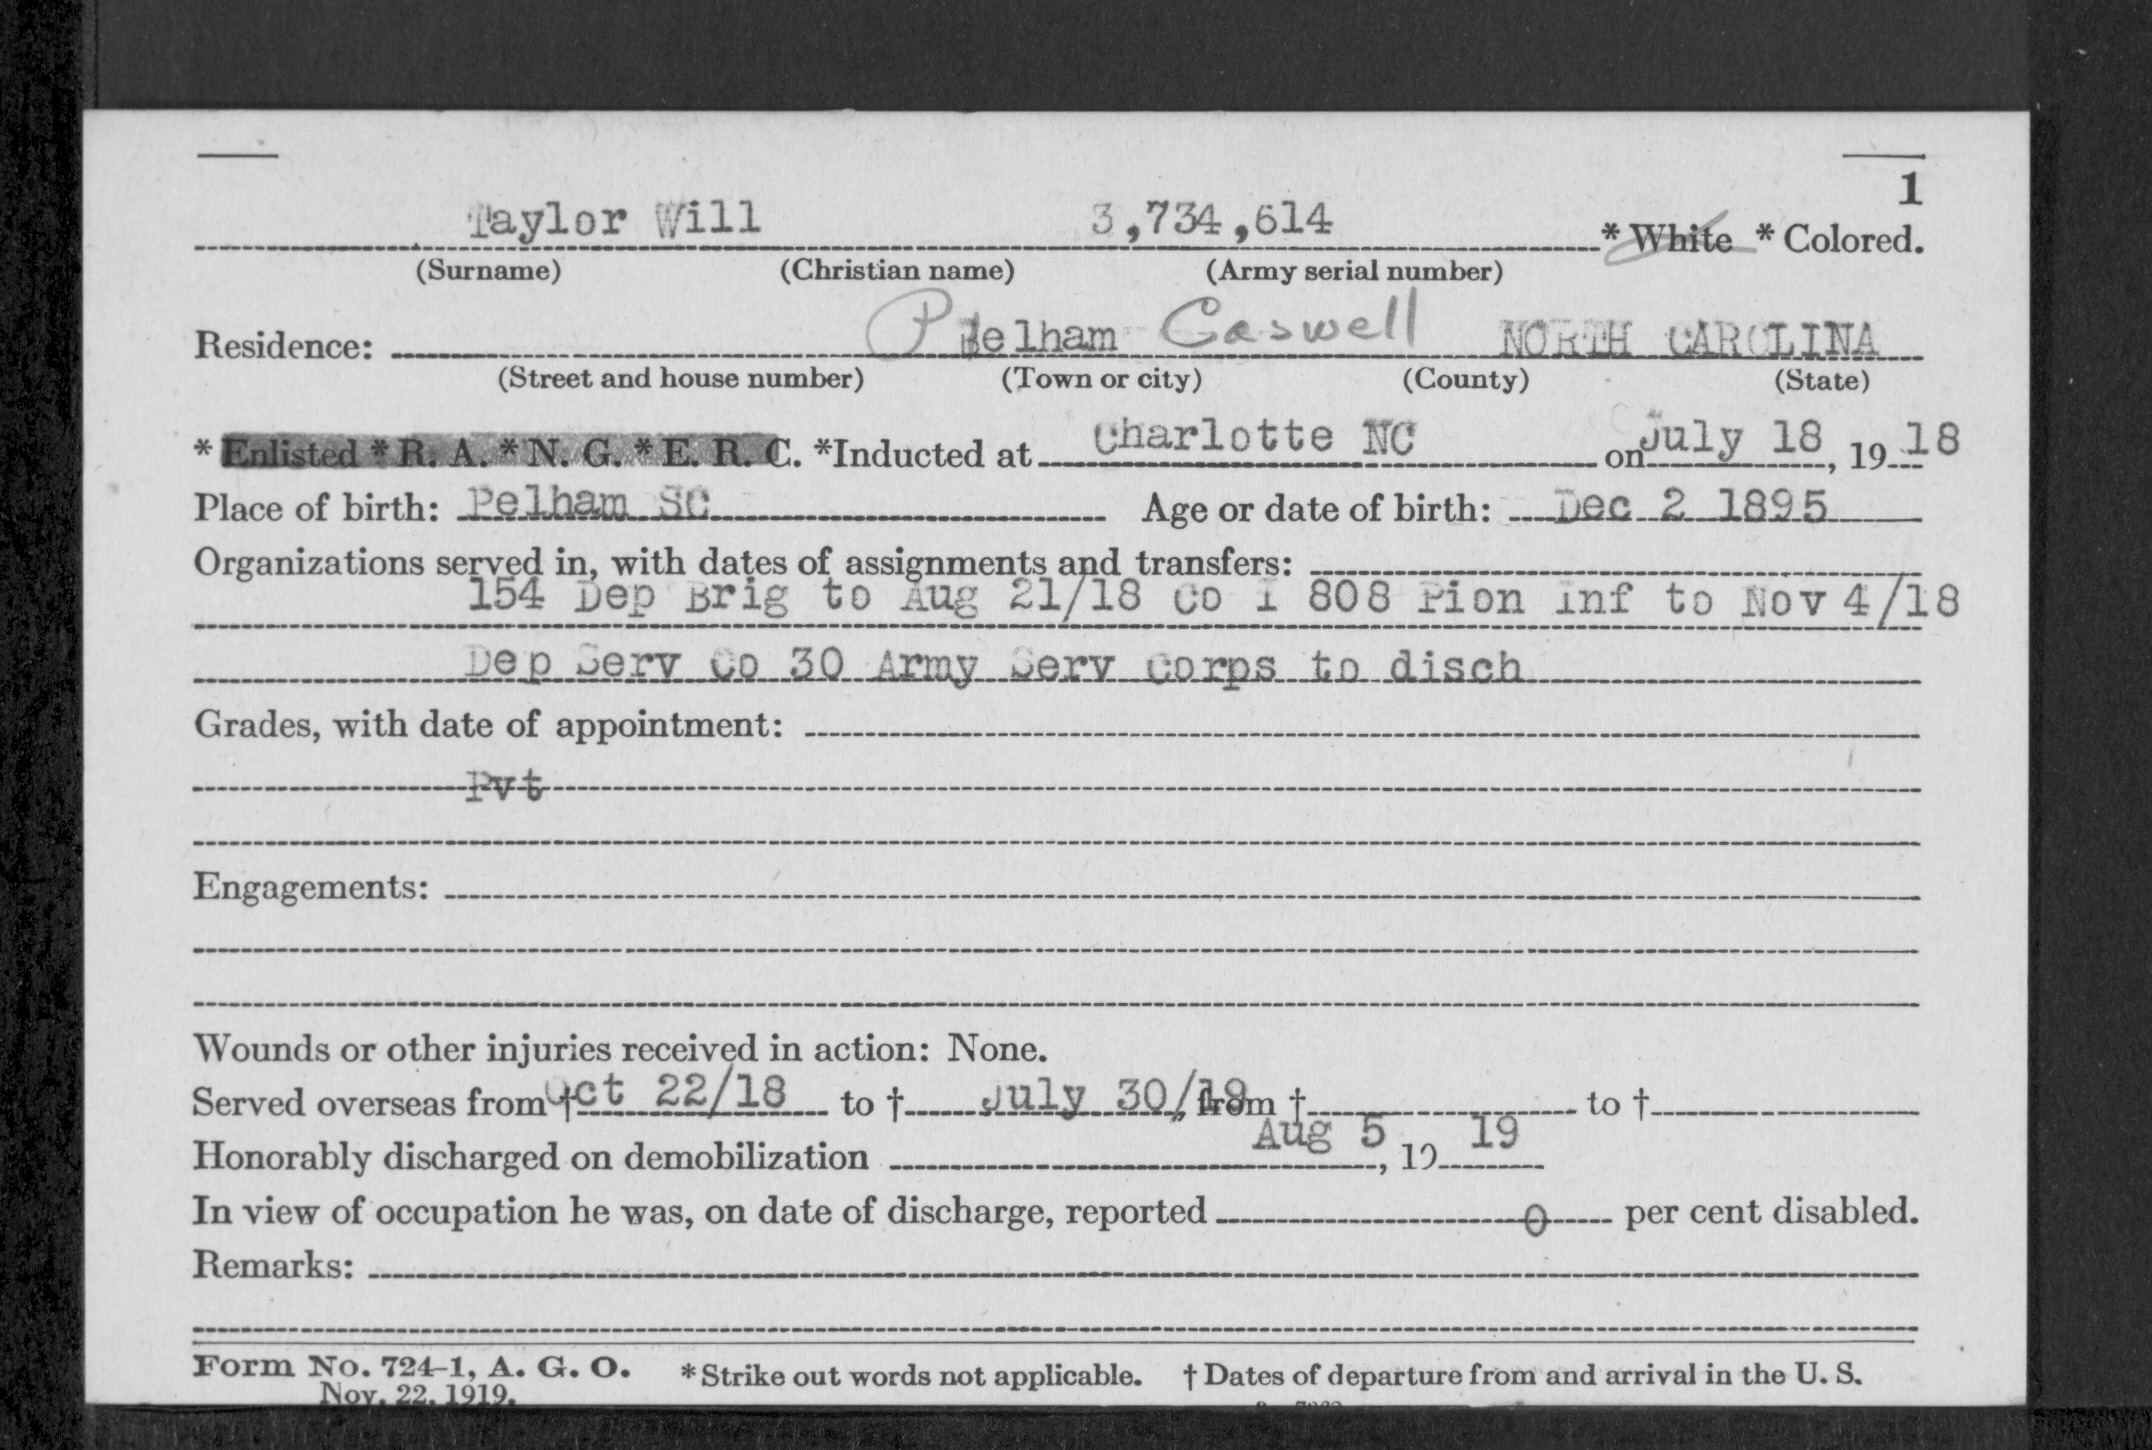 1
Taylor Will 3,734,614 * White * Colored.
(Surname) (Christian name) (Army serial number)
Residence: P Pelham Caswell NORTH CAROLINA
(Street and house number) (Town or city) (County) (State)
* Enlisted * R. A. * N. G. * E. R. C. *Inducted at Charlotte NC on July 18, 19 18
Place of birth: Pelham SC Age or date of birth: Dec 2 1895
Organizations served in, with dates of assignments and transfers:
154 Dep Brig to Aug 21/18 Co I 808 Pion Inf to Nov 4/18
Dep Serv Co 30 Army Serv Corps to disch
Grades, with date of appointment:
Pvt
Engagements:
Wounds or other injuries received in action: None.
Served overseas from † Oct 22/18 to † July 30/19, from † to †
Honorably discharged on demobilization Aug 5, 19 19
In view of occupation he was, on date of discharge, reported 0 per cent disabled.
Remarks:
Form No. 724-1, A. G. O. * Strike out words not applicable. † Dates of departure from and arrival in the U. S.
Nov. 22, 1919.